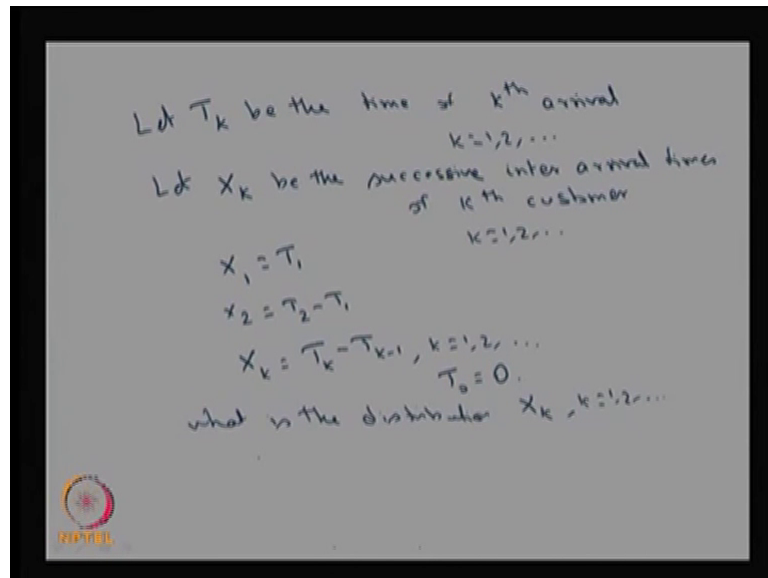 Let T_k be the time of kth arrival
k=1,2,...
Let X_k be the successive inter arrival times
of kth customer
k=1,2,...
X_1 = T_1
X_2 = T_2-T_1
X_k = T_k-T_{k-1}, k=1,2,...
T_0 = 0.
what is the distribution X_k, k=1,2,...
NPTEL